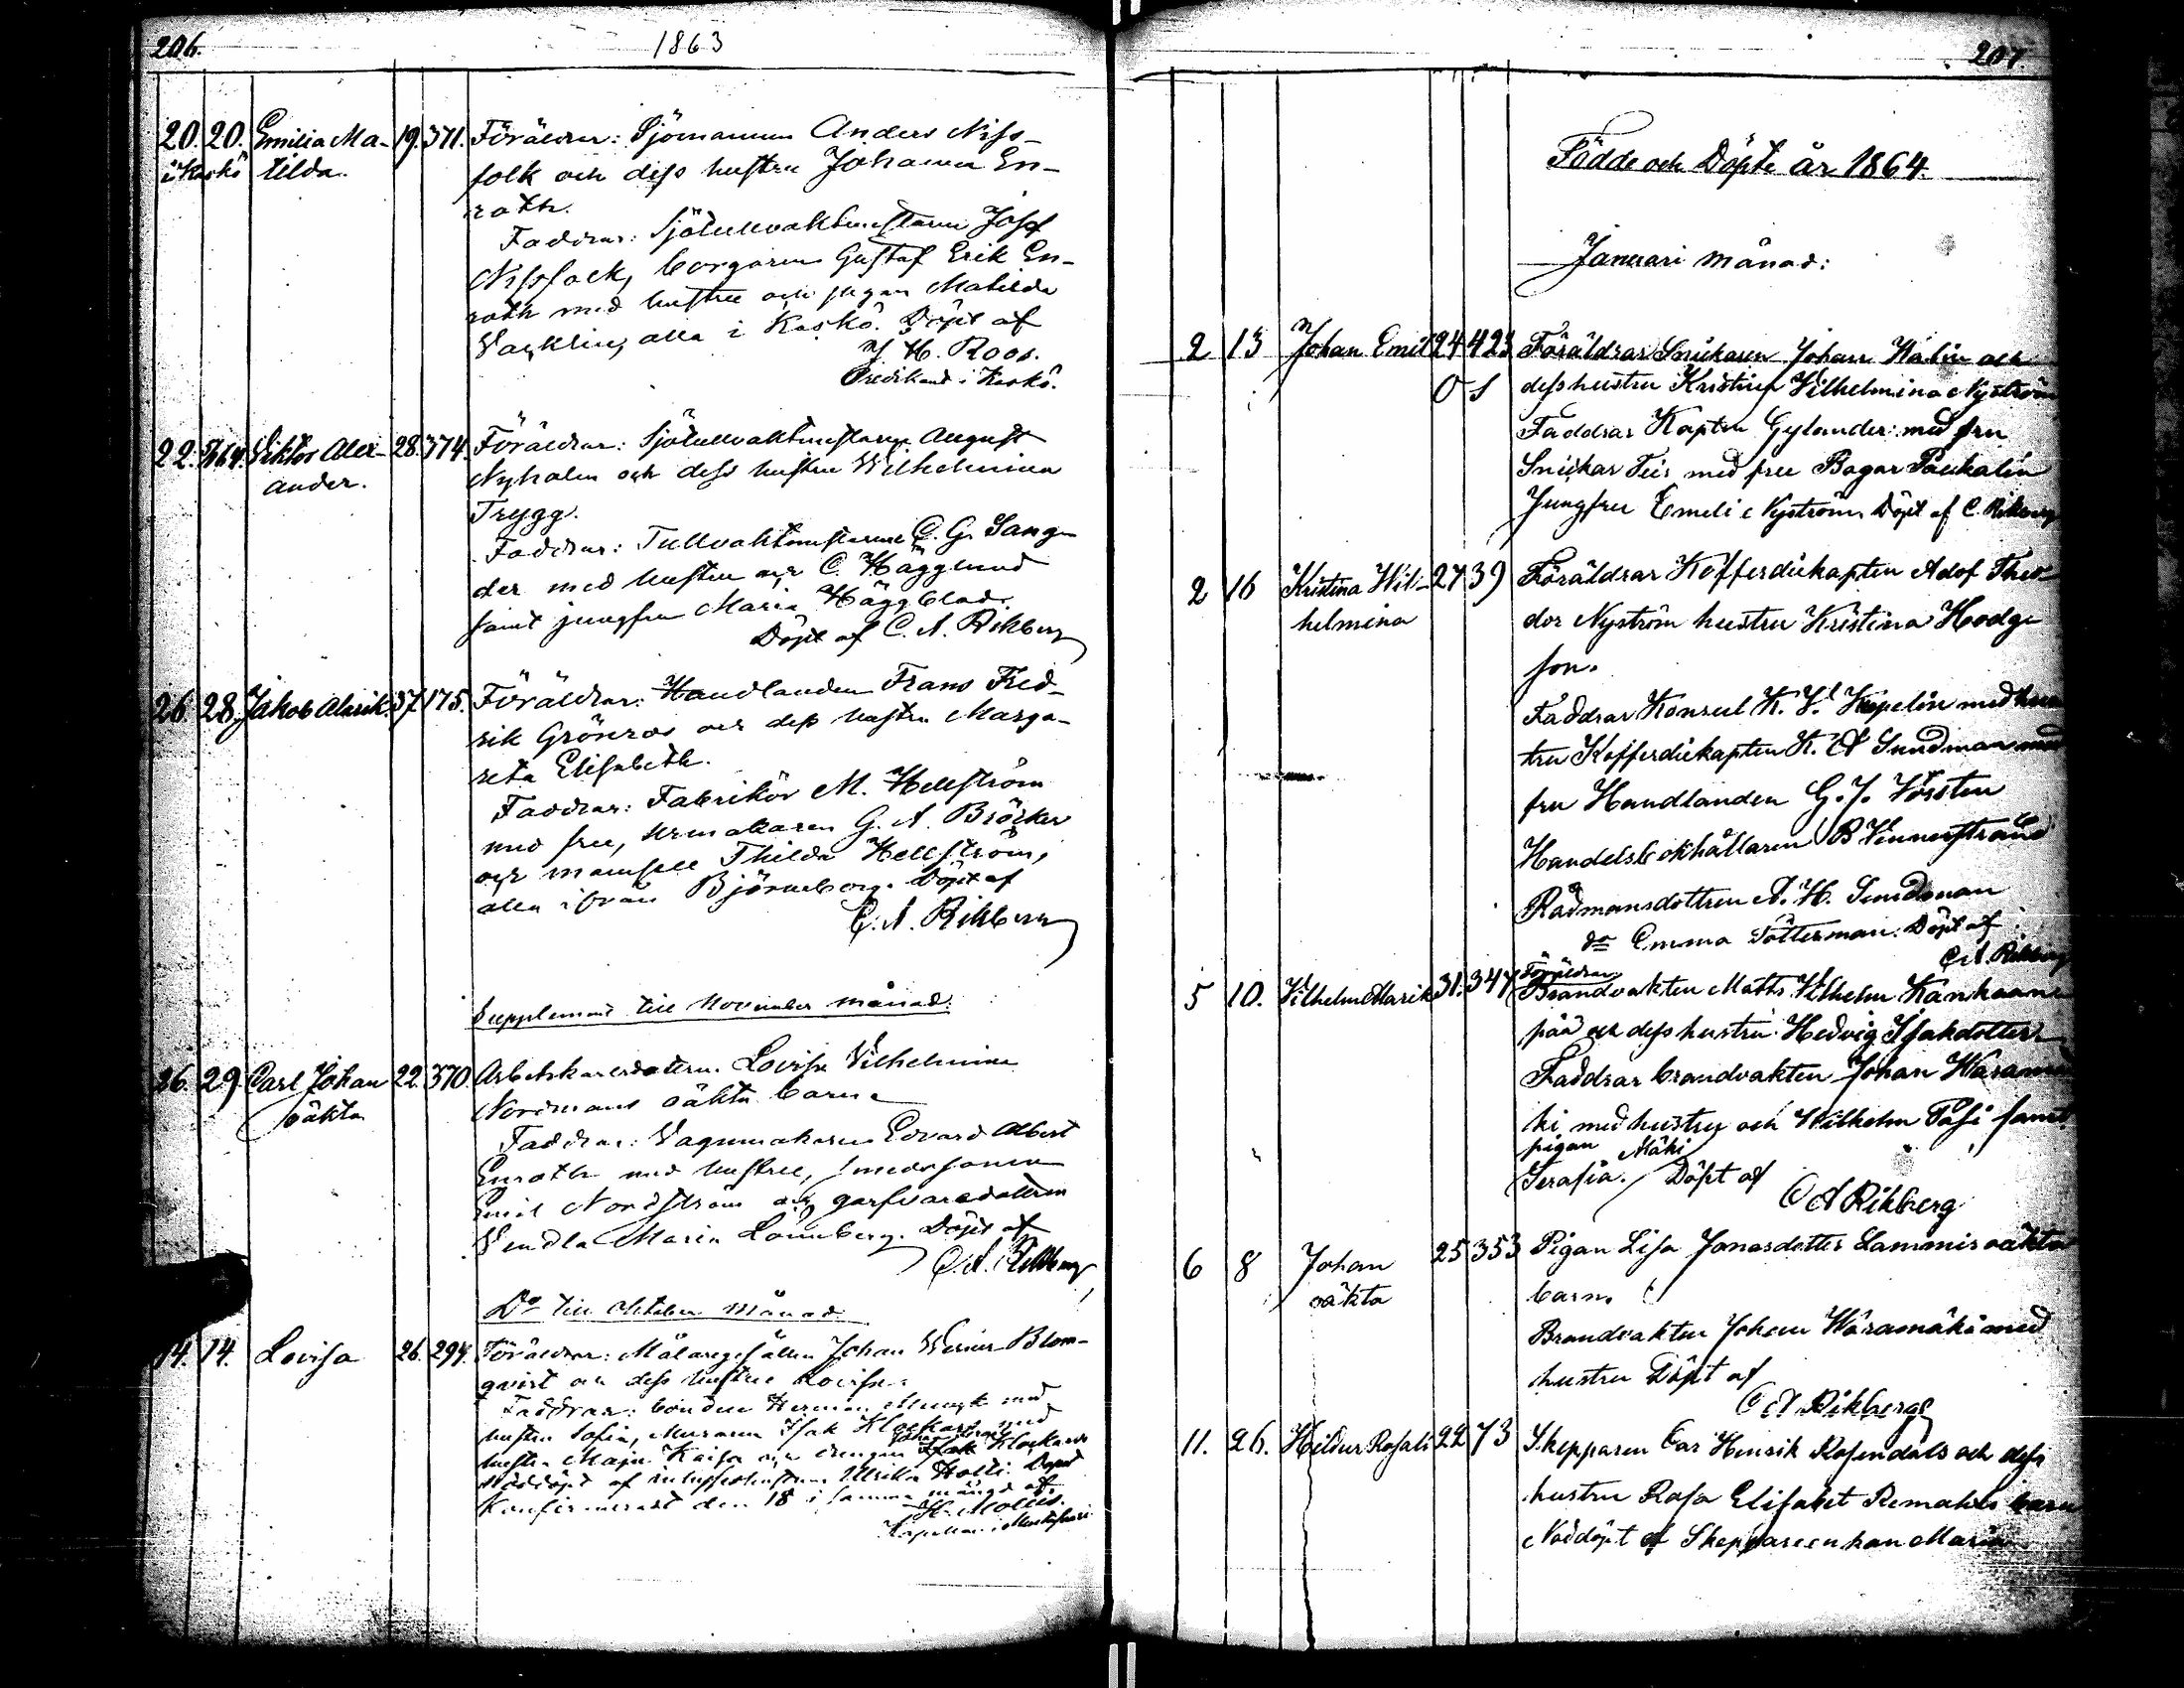 206.
1863
20. 20. Emilia Ma- 19. 371. Föräldrar: Sjömannen Anders Niss-
i Kaskö tilda. folk och dess hustru Johanna En-
roth.
Faddrar: Sjötullvaktmästaren Josef
Nissfolk, borgaren Gustaf Erik En-
roth med hustru och pigan Matilda
Wacklin, alla i Kaskö. Döpt af
H. Roos.
Predikant i Kaskö.
22. Viktor Alex- 28. 374. Föräldrar: Sjötullvaktmästaren August
ander. Nyholm och dess hustru Wilhelmina
Trygg.
Faddrar: Tullvaktmästarne C. G. Sang-
der med hustru och C. Hägglund
samt jungfru Maria Häggblad.
Döpt af C. A. Rikberg
26. 28. Jakob Alarik. 37. 175. Föräldrar: Handlanden Frans Fred-
rik Grönroos och dess hustru Marga-
reta Elisabeth.
Faddrar: Fabrikör M. Hellström
med fru, urmakaren G. A. Bröcker
och mamsell Thilda Hellström,
alla ifrån Björneborg. Döpt af
C. A. Rikberg
Supplement till November månad.
26. 29. Carl Johan 22. 370. Arbetskarlsdottern Lovisa Vilhelmina
oäkta Nordmans oäkta barn.
Faddrar: Vagnmakaren Edvard Albert
Enroth med hustru, smedssonen
Emil Nordström och garfvaredottern
Vendla Maria Lönnberg. Döpt af
C. A. Rikberg
Do till Oktober månad
14. 14. Lovisa 26. 294. Föräldrar: Målaregesällen Johan Werner Blom-
qvist och dess hustru Lovisa.
Faddrar: bonden Herman Munck med
hustru Sofia, Muraren Isak Klockars med
hustru Maja Kaisa och drengen Isak Klockars
Nöddöpt af inhysehustrun Ulrika Holli. Dopet
Konfirmeradt den 18 i samma månad af
Kapellan i
207.
Födde och Döpte år 1864.
Januari månad:
2 13 Johan Emil 24 423 Föräldrar Snickaren Johan Walin och
O S dess hustru Kristina Wilhelmina Nyström
Faddrar Kapten Gylander med fru
Snickar Teir med fru Bagar Packalin
Jungfru Emeli Nyström Döpt af C. Rikberg
2 16 Kristina Wil- 27 39 Föräldrar Kofferdiekapten Adof Theo-
helmina dor Nyström hustru Kristina Hodg-
son.
Faddrar Konsul K. J. Kepelin med hus-
tru Kofferdiekapten K. A Sundman med
fru Handlanden G. J. Wörsten
Handelsbokhållaren B Vennerstrand
Rådmansdottren A. H. Sundman
do Emma Sätterman. Döpt af
C A Rikberg
5 10. Vilhelm Alarik 31. 347 Föräldrar
Brandvakten Matts Wilhelm Kankaan-
pää och dess hustru Hedvig Isaksdotter
Faddrar brandvakten Johan Waramä-
ki med hustru och Wilhelm Pasi samt
pigan Mäki
Serafia. Döpt af
C A Rikberg
6 8 Johan 25 353 Pigan Lisa Jonasdotter Lammis oäkta
oäkta barn.
Brandvakten Johan Waramäki med
hustru Döpt af
C A Rikberg
11. 26. Hildur Rosali 22 73 Skepparen Car Henrik Rosendals och dess
hustru Rosa Elisabet Remahls barn
Nöddöpt af Skeppareenkan Maria